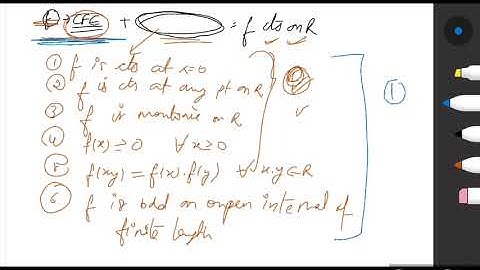 f → CFE + = f cts on R
① f is cts at x=0
② f is cts at any pt on R
③ f is monotonic on R
④ f(x) ≥ 0 ∀ x ≥ 0
⑤ f(xy) = f(x).f(y) ∀ x,y ∈ R
⑥ f is bdd on open interval of
finite length
①